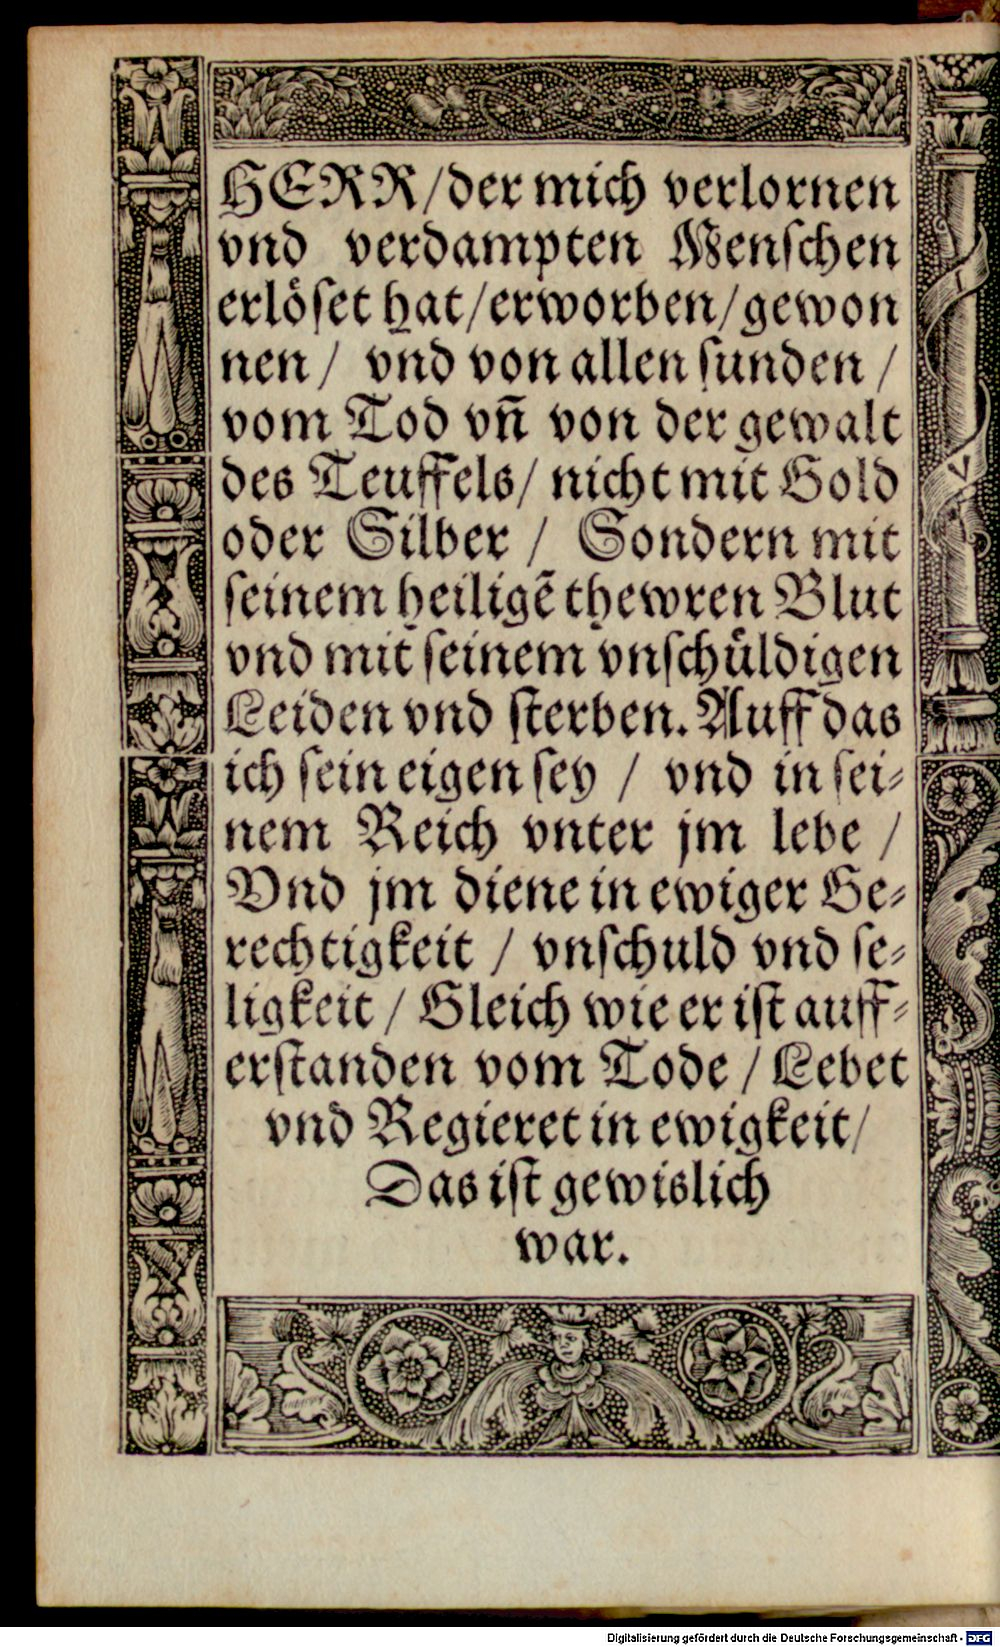 HERR/der mich verlornen
vnd verdampten Menschen
erlöset hat/erworben/gewon
nen/ vnd von allen sunden/
vom Tod vñ von der gewalt
des Teuffels/ nicht mit Gold
oder Silber/ Sondern mit
seinem heiligẽ thewren Blut
vnd mit seinem vnschüldigen
Leiden vnd sterben. Auff das
ich sein eigen sey/ vnd in sei-
nem Reich vnter jm lebe/
Vnd jm diene in ewiger Ge-
rechtigkeit/ vnschuld vnd se-
ligkeit/ Gleich wie er ist auff-
erstanden vom Tode/ Lebet
vnd Regieret in ewigkeit/
Das ist gewislich
war.
Digitalisierung gefördert durch die Deutsche Forschungsgemeinschaft - DFG